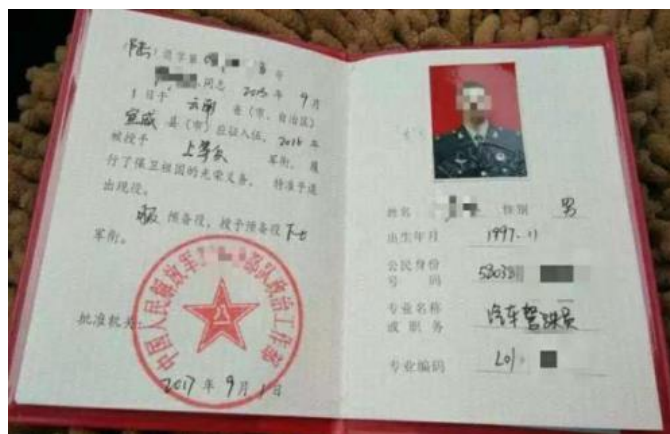 退字第 号
同志 2015 年 9 月
1 日于 云南 省(市、自治区)
宣威 县(市)应征入伍,2016 年
被授予 上等兵 军衔,履
行了保卫祖国的光荣义务,特准予退
出现役。
服 预备役,授予预备役 下士
军衔。
中国人民解放军 部队政治工作部
批准机关:
2017 年 9 月 1 日
姓名 性别 男
出生年月 1997.11
公民身份
号码 530381
专业名称 汽车驾驶员
或职务
专业编码